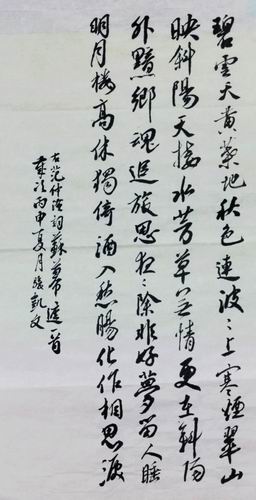 碧雲天黃葉地秋色連波〻上寒煙翠山
映斜陽天接水芳草无情更在斜陽
外黯鄉魂追旅思夜〻除非好夢留人睡
明月樓高休獨倚酒入愁腸化作相思淚
右范仲淹詞蘇幕遮一首
歲次丙申夏月凱文